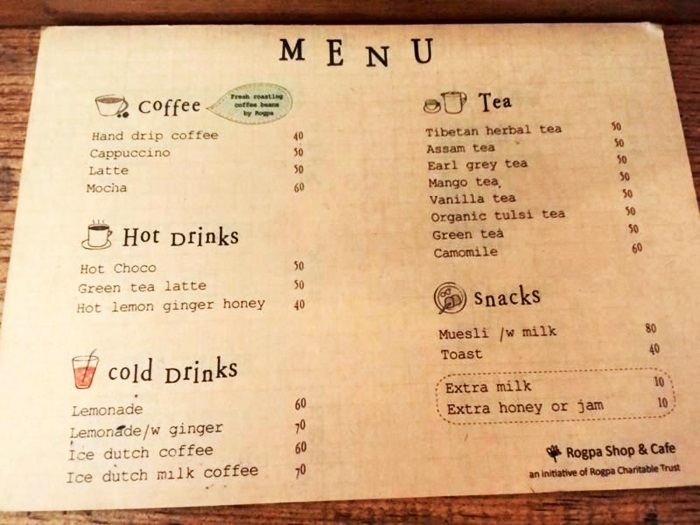 MENU
Coffee
Fresh roasting
coffee beans
by Rogpa
Hand drip coffee 40
Cappuccino 50
Latte 50
Mocha 60
Hot Drinks
Hot Choco 50
Green tea latte 50
Hot lemon ginger honey 40
cold Drinks
Lemonade 60
Lemonade/w ginger 70
Ice dutch coffee 60
Ice dutch milk coffee 70
Tea
Tibetan herbal tea 50
Assam tea 50
Earl grey tea 50
Mango tea 50
Vanilla tea 50
Organic tulsi tea 50
Green tea 50
Camomile 60
snacks
Muesli /w milk 80
Toast 40
Extra milk 10
Extra honey or jam 10
Rogpa Shop & Cafe
an initiative of Rogpa Charitable Trust